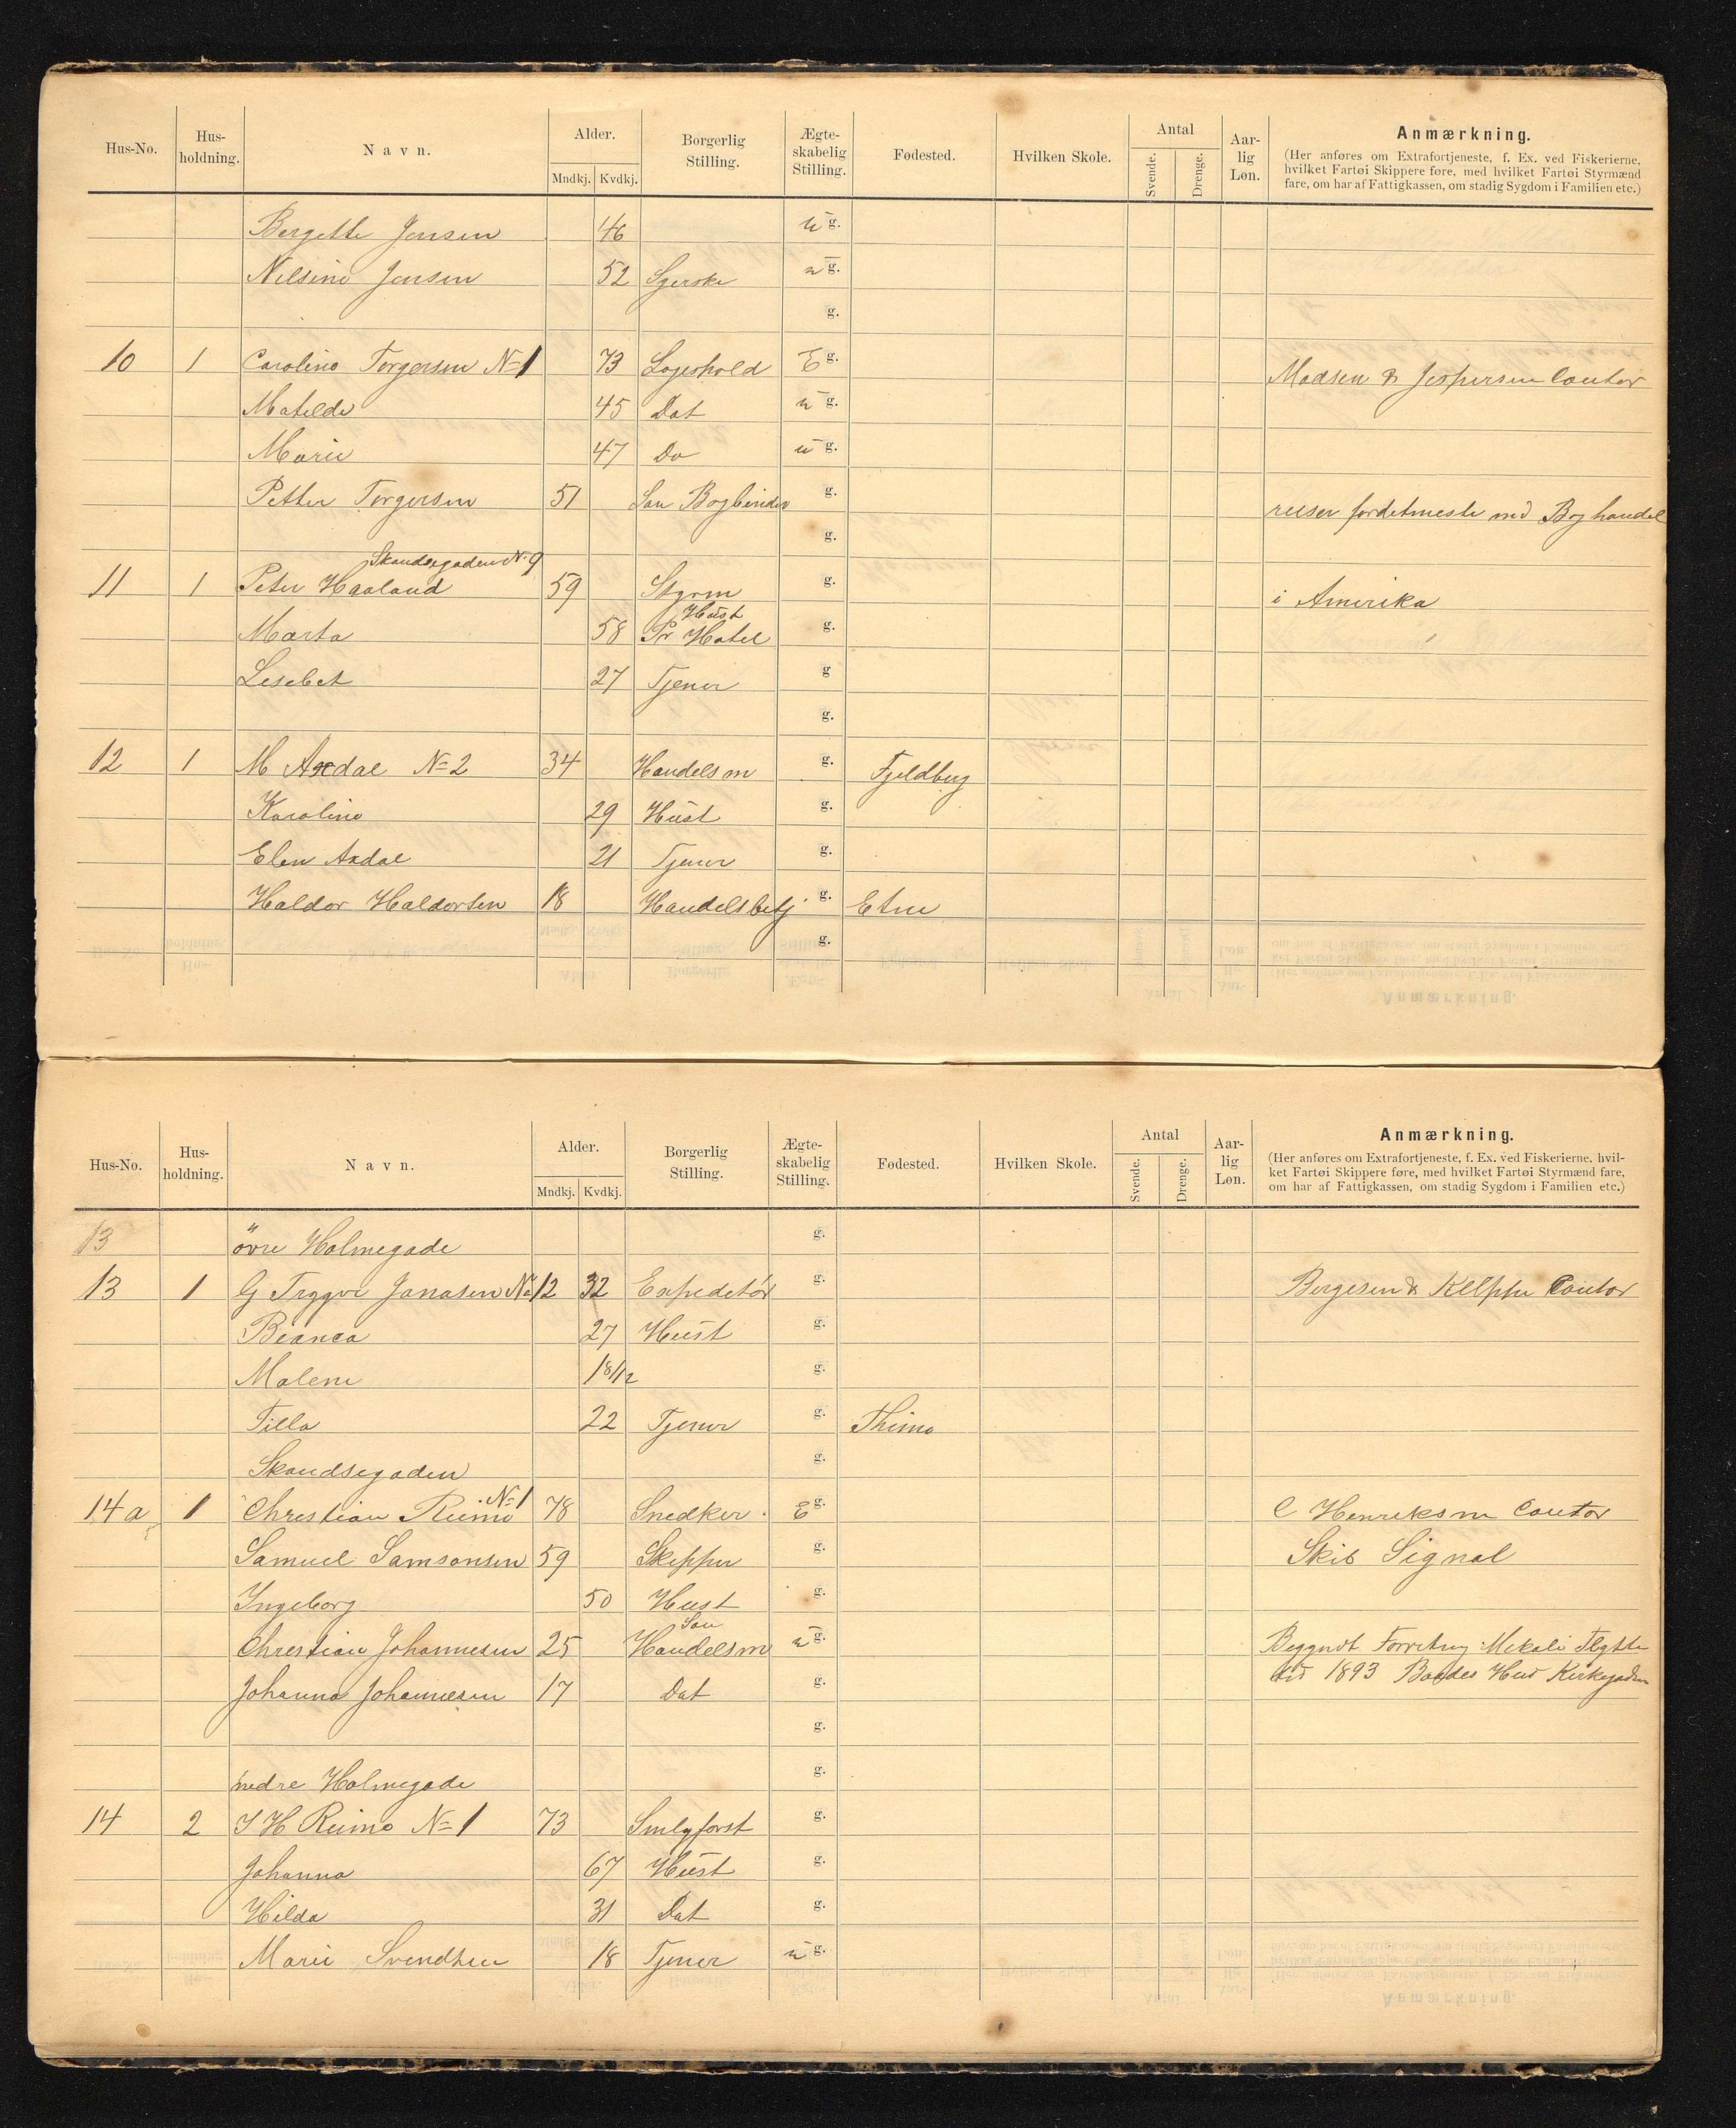 Hus-No. Hus-holdning. Navn. Alder. Mndkj. Kvdkj. Borgerlig Stilling. Ægte-skabelig Stilling. Fødested. Hvilken Skole. Antal Svende. Drenge. Aar-lig Løn. Anmærkning.
(Her anføres om Extrafortjeneste, f. Ex. ved Fiskerierne,
hvilket Fartøi Skippere føre, med hvilket Fartøi Styrmænd
fare, om har af Fattigkassen, om stadig Sygdom i Familien etc.)
Bergette Jensen 46 u g.
Nilsine Jensen 52 Syerske u g.
g.
10 1 Caroline Torgersen No 1 73 Logishold E g. Madsen & Jespersen Contor
Matilde 45 Dat u g.
Marie 47 Do u g.
Petter Torgersen 51 Søn Bogbinder g. reiser fordetmeste med Boghandel
g.
Skandsegaden No 9
11 1 Peter Haaland 59 Styrm g. i Amerika
Hust
Marta 58 Pr Hotel g.
Lisebet 27 Tjener g
g.
12 1 M Axdal No 2 34 Handelsm g. Fjeldberg
Karoline 29 Hust g.
Elen Axdal 21 Tjener g.
Haldor Haldorsen 18 Handelsbetj g. Etne
g.
Hus-No. Hus-holdning. Navn. Alder. Mndkj. Kvdkj. Borgerlig Stilling. Ægte-skabelig Stilling. Fødested. Hvilken Skole. Antal Svende. Drenge. Aar-lig Løn. Anmærkning.
(Her anføres om Extrafortjeneste, f. Ex. ved Fiskerierne, hvil-
ket Fartøi Skippere føre, med hvilket Fartøi Styrmænd fare,
om har af Fattigkassen, om stadig Sygdom i Familien etc.)
13 øvre Holmegade g.
13 1 G Trygve Jonasen No 12 32 Expeditør g. Bergesen & Kelppe Contor
Bianca 27 Hust g.
Malene 1 8/12 g.
Tilla 22 Tjener g. Thime
Skandsegaden g.
No 1
14a 1 Christian Reime 78 Snedker E g. C Henriksen Contor
Samuel Samsonsen 59 Skipper g. Skib Signal
Ingeborg 50 Hust g.
Søn
Christian Johannesen 25 Handelsm u g. Begyndt Forretning Mikali flytte
Johanna Johannesen 17 Dat g. did 1893 Hus Kirkegaden
g.
nedre Holmegade g.
14 2 I H Reime No 1 73 g.
Johanna 67 Hust g.
Hilda 31 Dat g.
Marie Svendsen 18 Tjener u g.